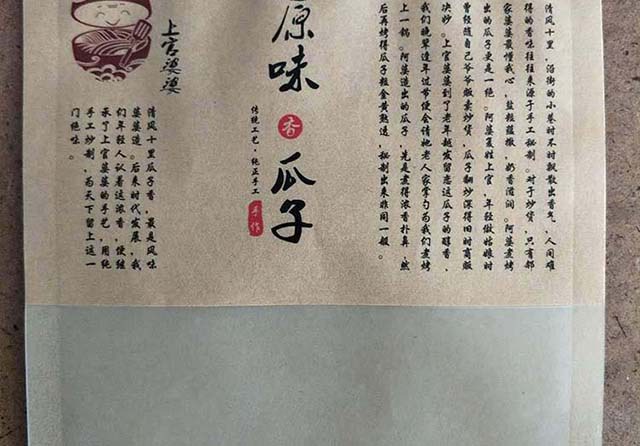 清风十里，沿街的小巷时不时飘散出香气，人间难
得的香味往往来源于手工秘制。对于炒货，只有邻
家婆婆最懂我心，盐轻蕴微，奶香滋润。阿婆煮烤
出的瓜子更是一绝。阿婆复姓上官，年轻做姑娘时
曾经随自己爷爷贩卖炒货，瓜子翻炒深得旧时商贩
决妙。上官婆婆到了老年越发留恋这瓜子的醇香，
我们晚辈逢年过节便会请她老人家掌勺为我们煮烤
上一锅。阿婆造出的瓜子，先是煮得浓香朴鼻，然
后再烤得瓜子粒金黄熟透，秘制出来非同一般。
原味
香
瓜子
传统工艺，纯正手工
手作
上官婆婆
清风十里瓜子香，最是风味
婆婆造。后来时代发展，我
们年轻人认着这浓香，便继
承了上官婆婆的手艺，用纯
手工炒制，为天下留上这一
门绝味。